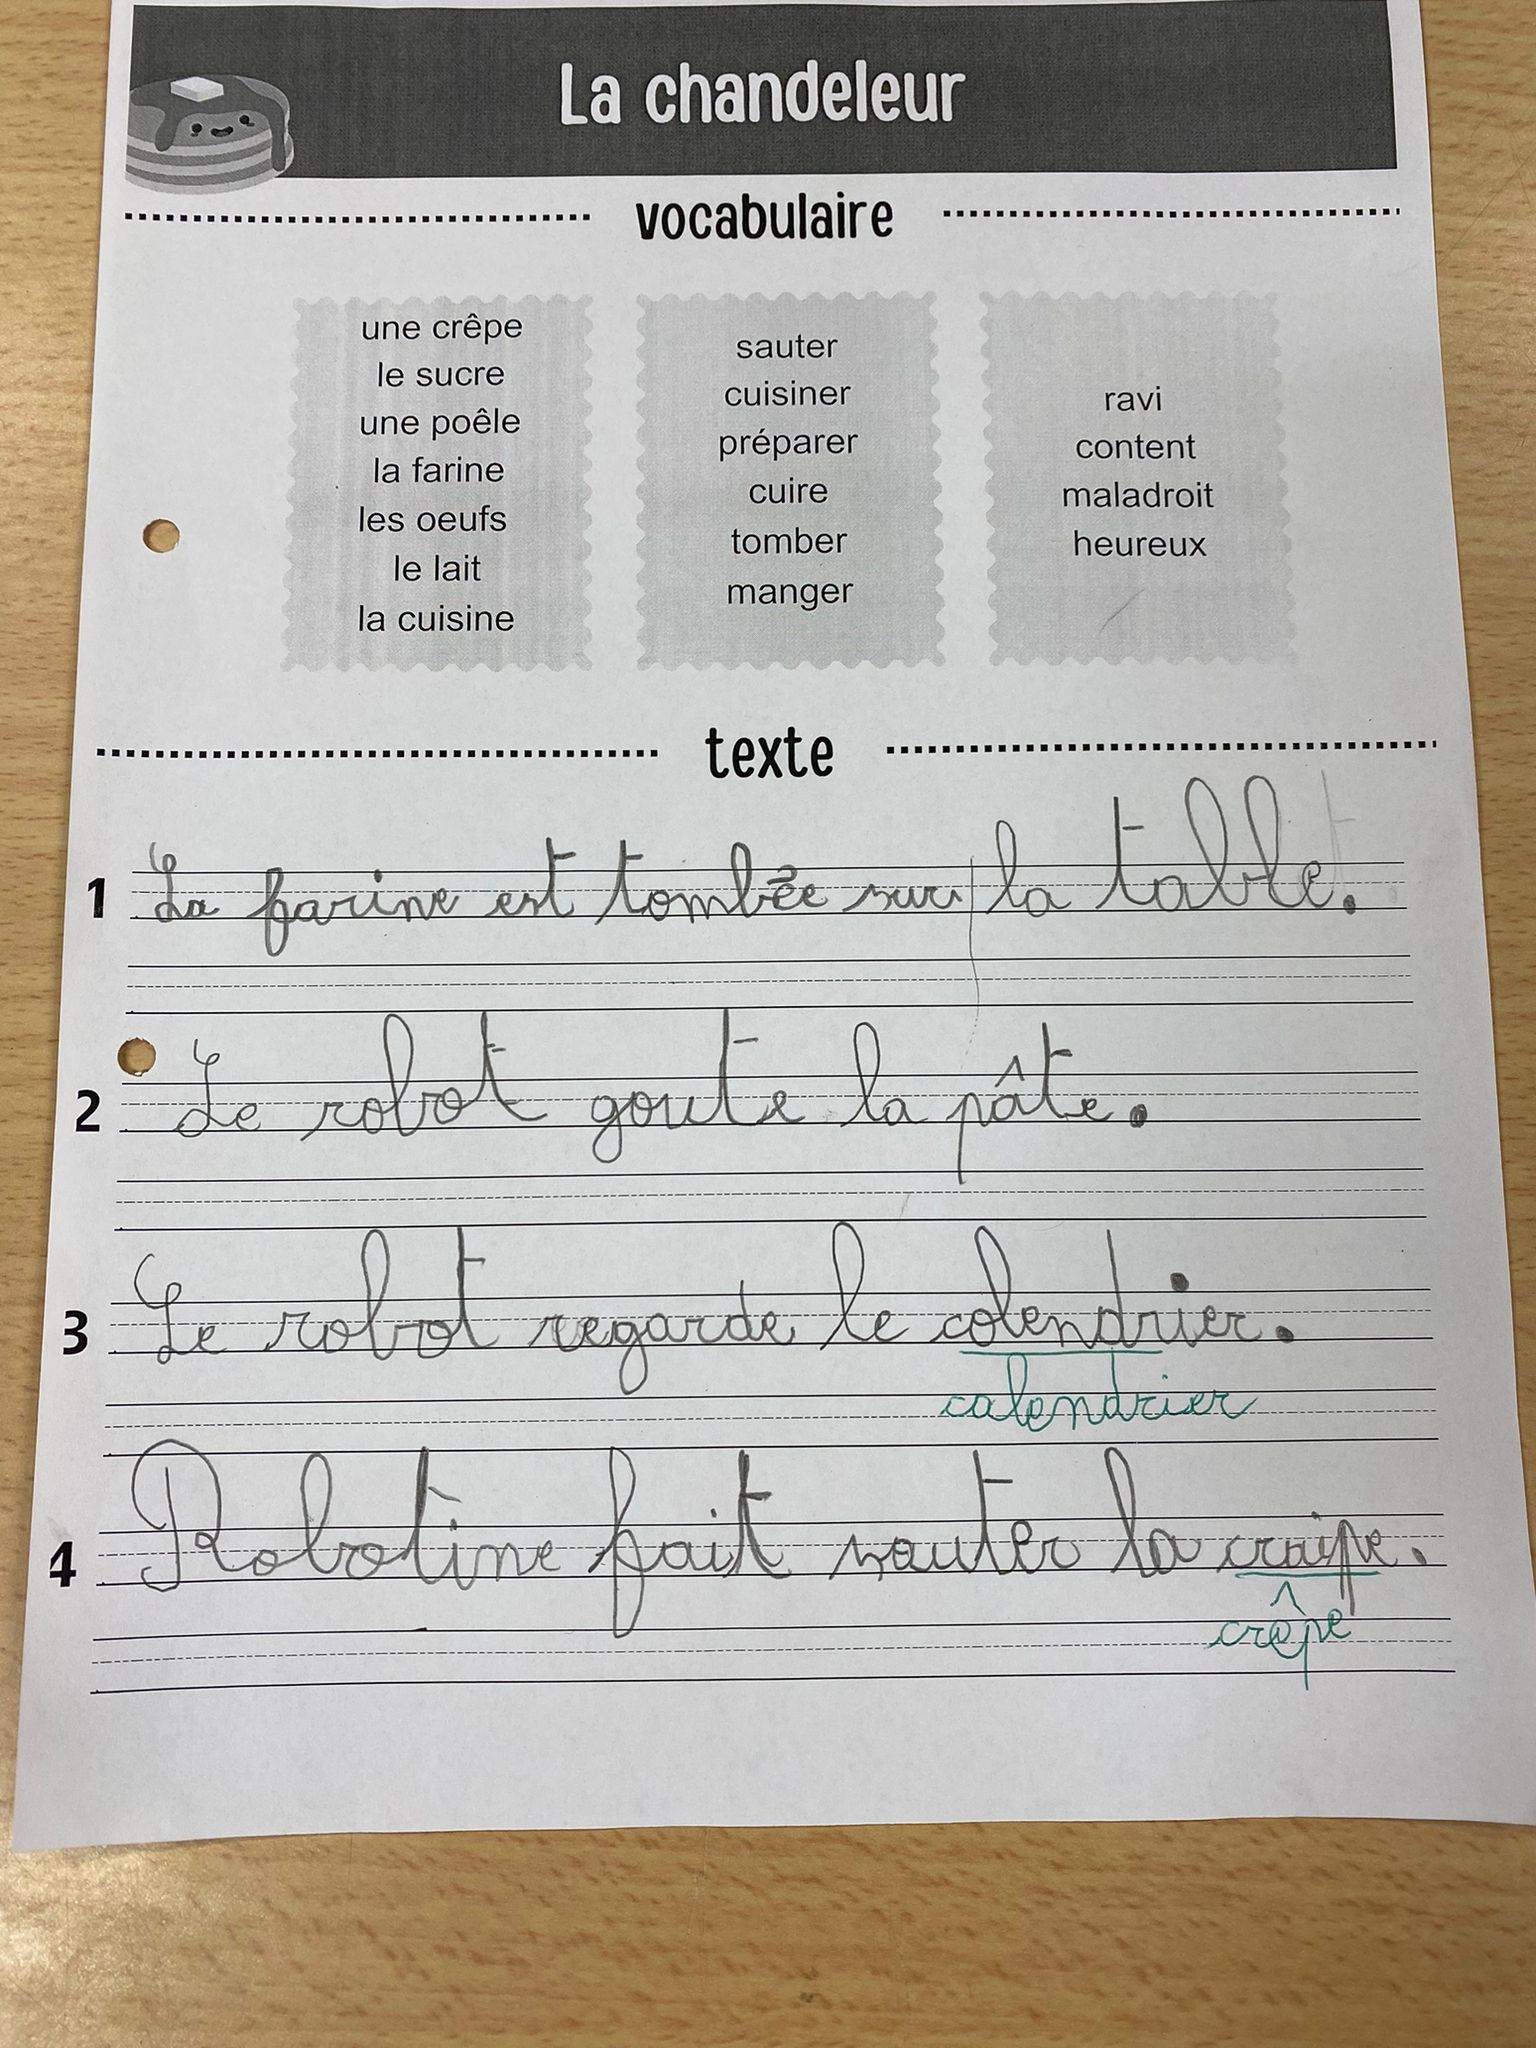 La chandeleur
vocabulaire
une crêpe
le sucre
une poêle
la farine
les oeufs
le lait
la cuisine
sauter
cuisiner
préparer
cuire
tomber
manger
ravi
content
maladroit
heureux
texte
1 La farine est tombée sur la table.
2 Le robot goute la pâte.
3 Le robot regarde le colendrier.
calendrier
4 Robotine fait sauter la craipe.
crêpe